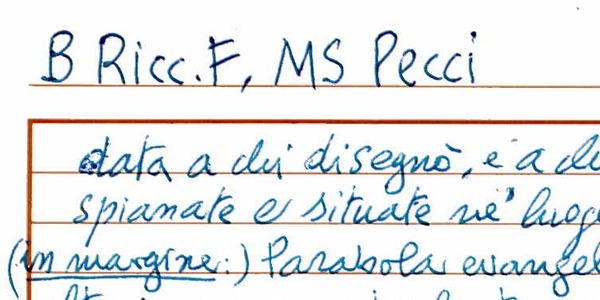 B Ricc. F, MS Pecci
data a chi disegnò, e a
spianate e situate ne'
(in margine:) Parabola